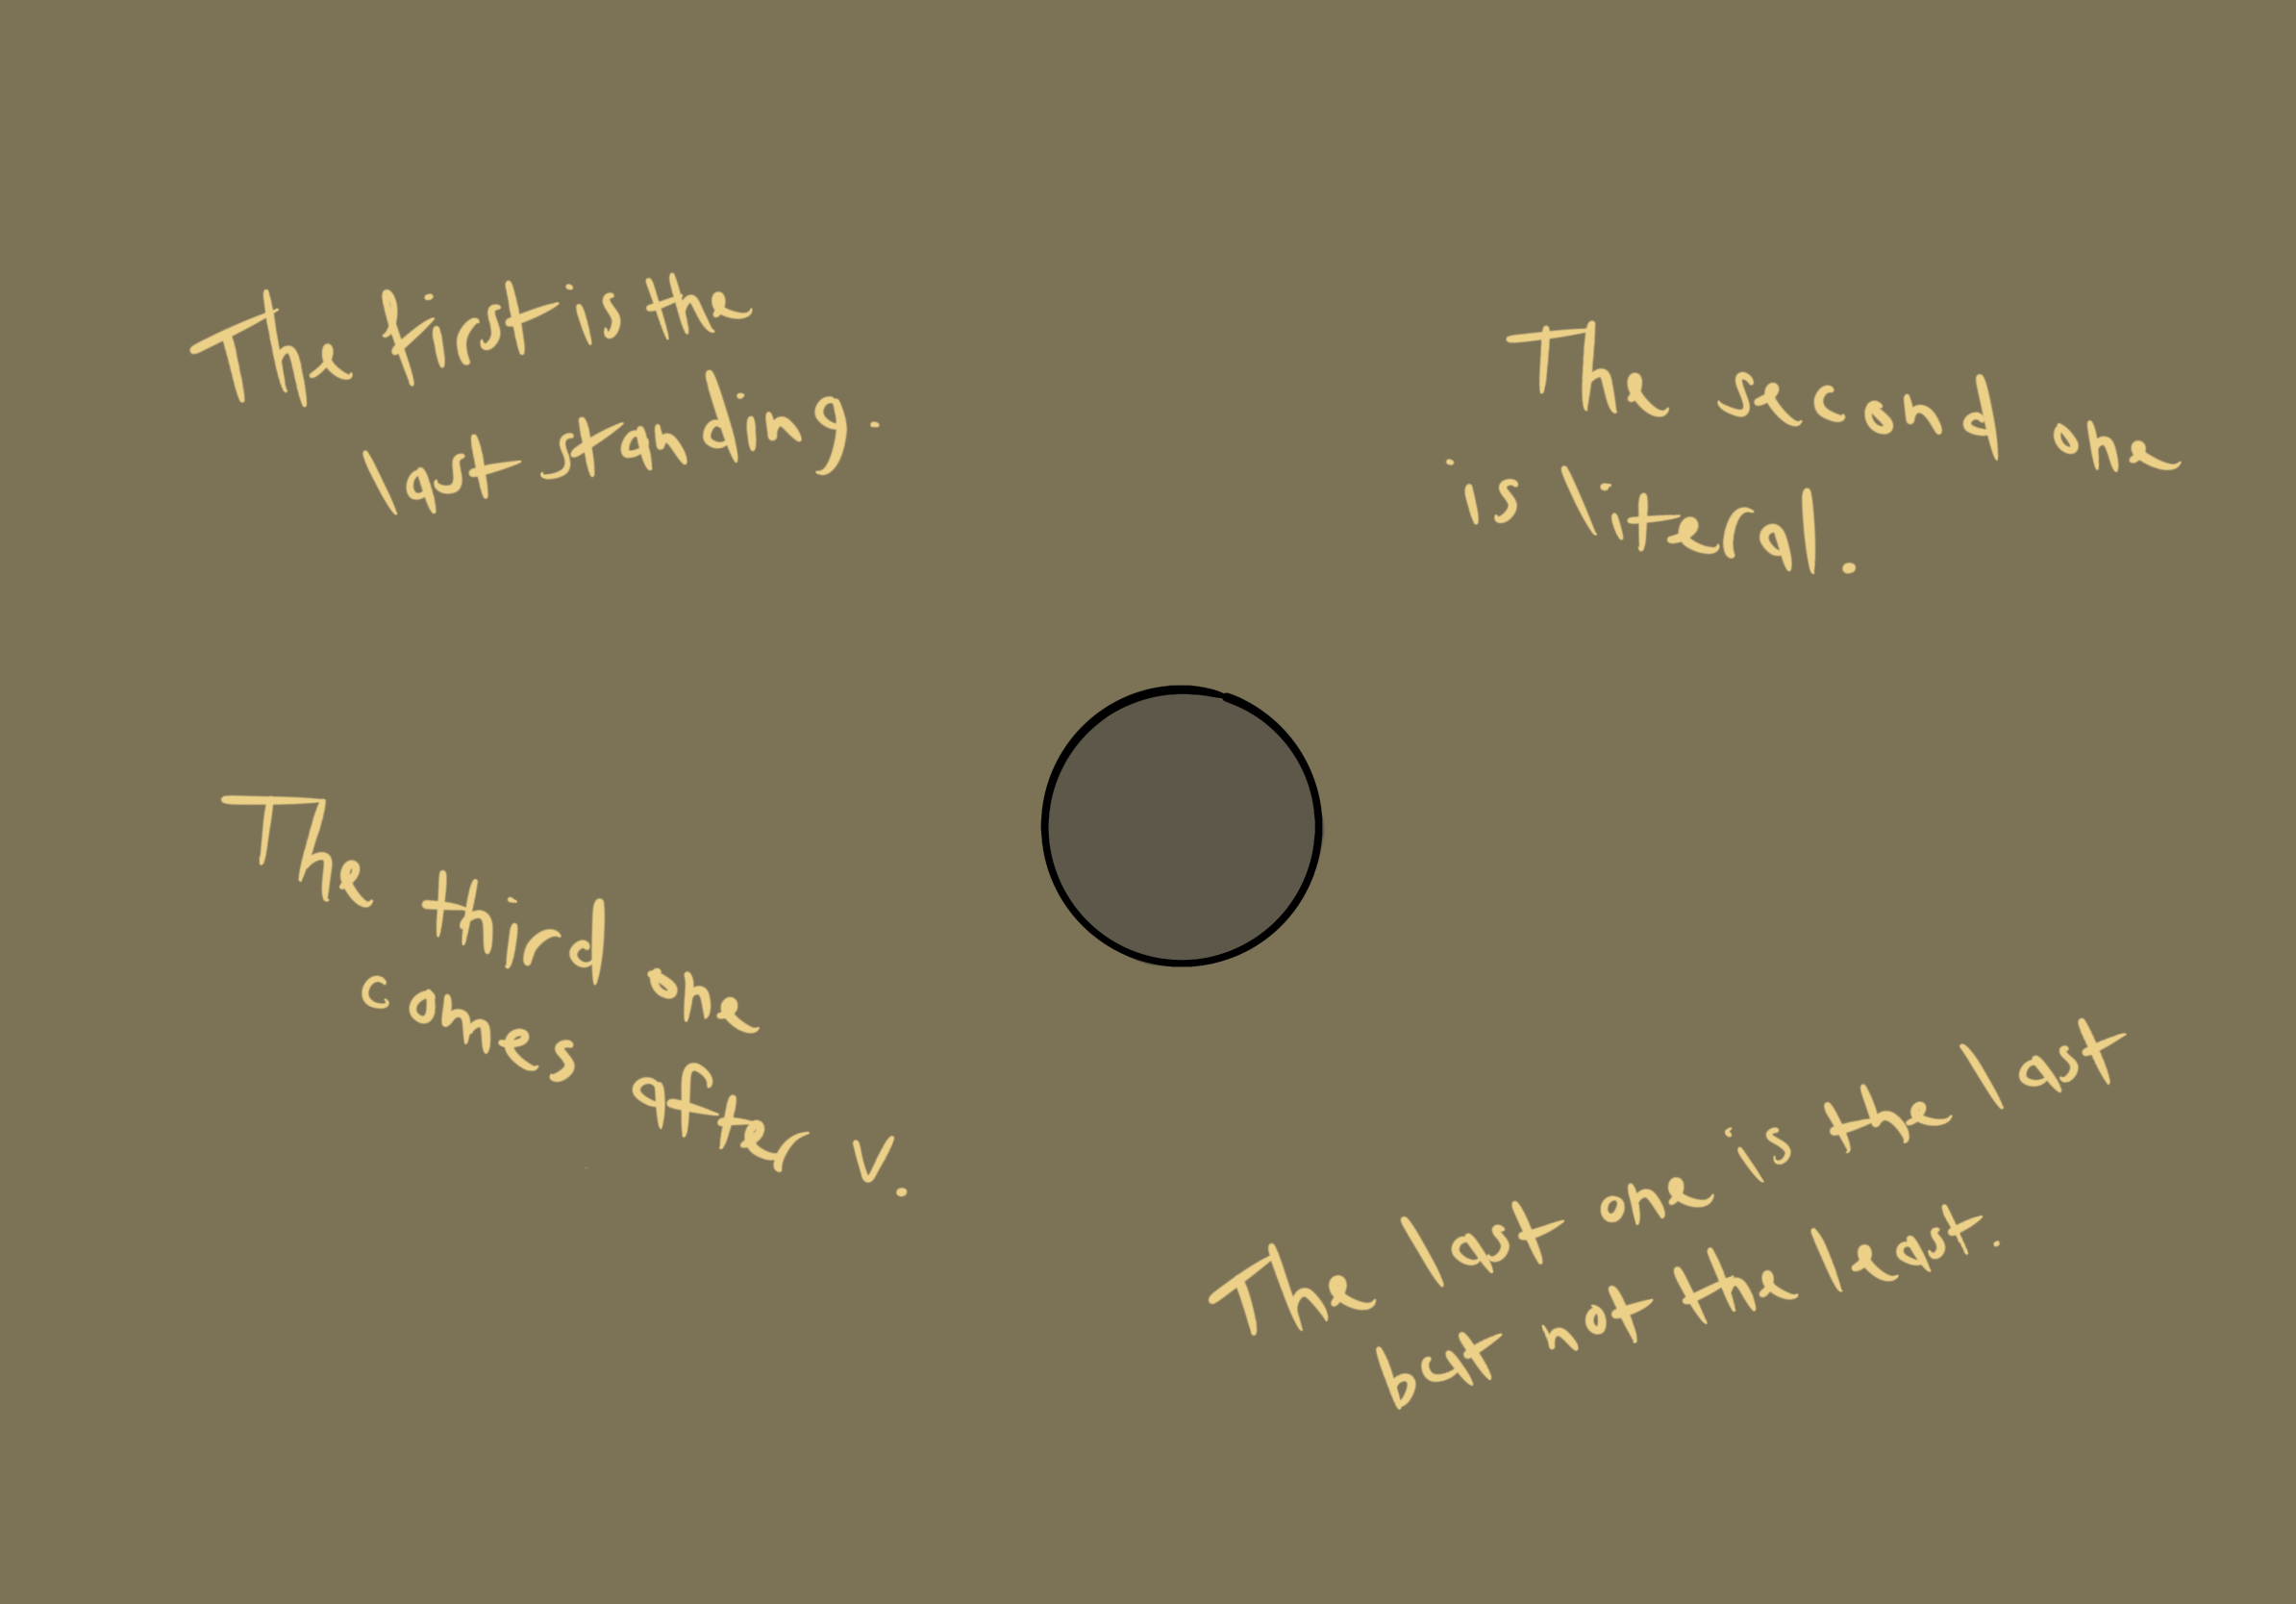 The first is the
last standing.
The second one
is literal.
The third one
comes after v.
The last one is the last
but not the least.